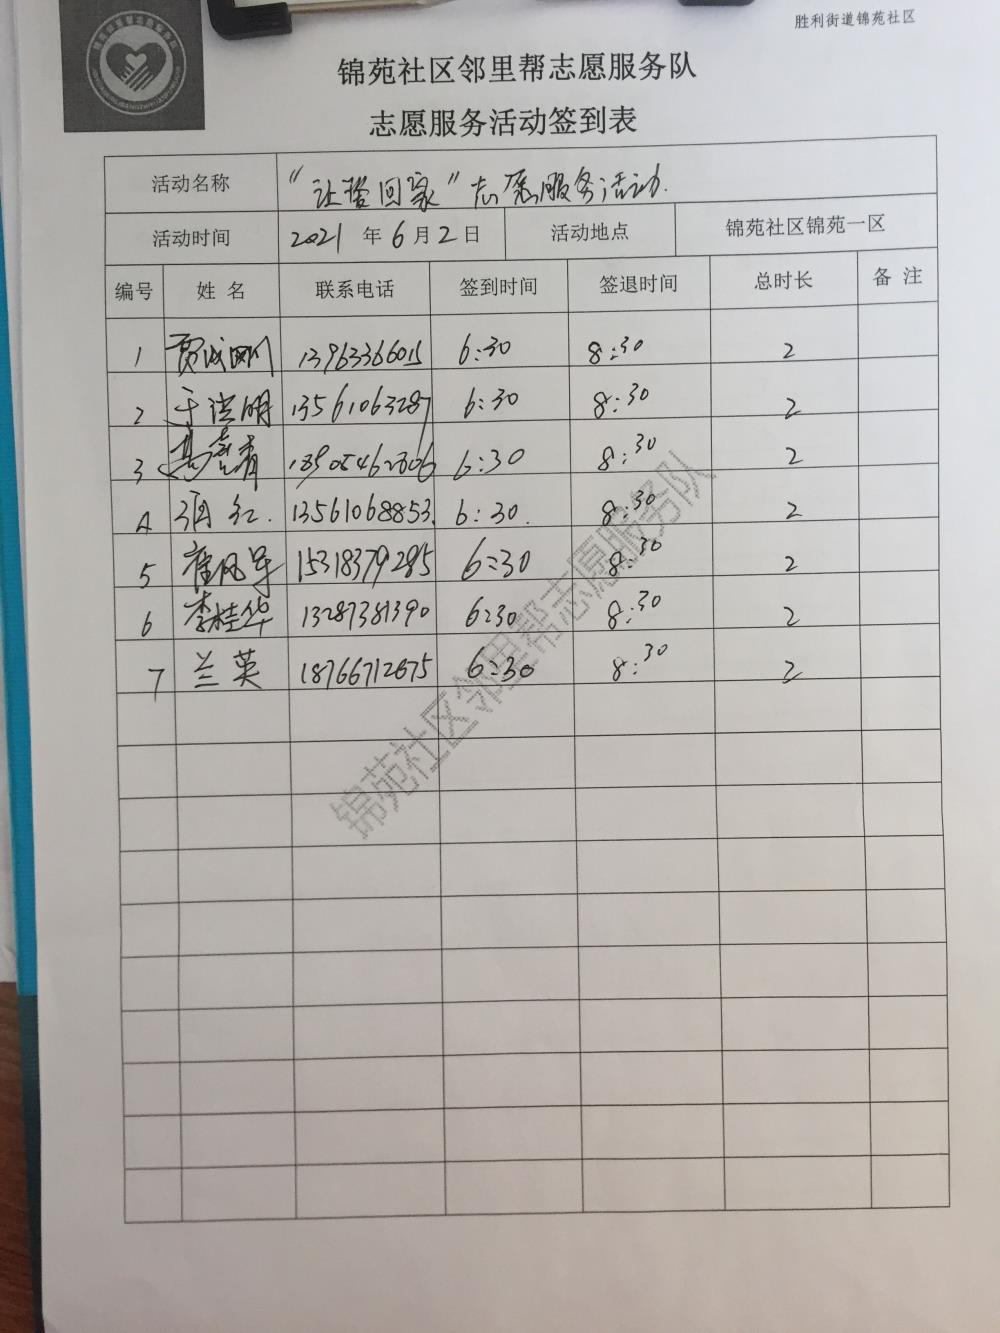 胜利街道锦苑社区
锦苑社区邻里帮志愿服务队
志愿服务活动签到表
活动名称 "让爱回家"志愿服务活动.
活动时间 2021 年 6 月 2 日 活动地点 锦苑社区锦苑一区
编号 姓 名 联系电话 签到时间 签退时间 总时长 备 注
1 6:30 8:30 2
2 于洪明 13561063287 6:30 8:30 2
3 6:30 8:30 2
4 红. 13561068853. 6:30. 8:30 2
5 崔风军 15318379285 6:30 8:30 2
6 李桂华 13287381390 6:30 8:30 2
7 兰英 18766712675 6:30 8:30 2
锦苑社区邻里帮志愿服务队